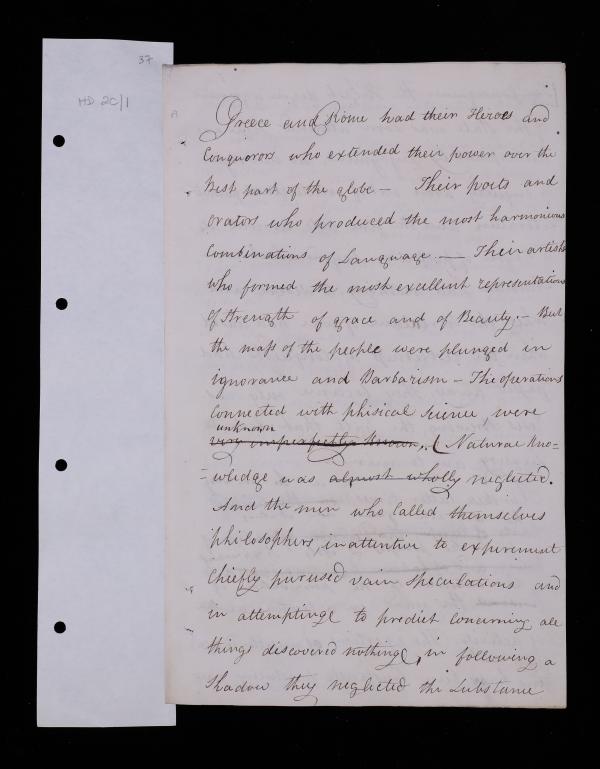 37
HD 2C/1
Greece and Rome had their Heroes and
Conquorors who extended their power over the
Best part of the globe — Their poets and
orators who produced the most harmonious
Combinations of Language — Their artists
who formed the most excellent representations
of Strength of grace and of Beauty. — But
the mass of the people were plunged in
ignorance and Barbarism — The operations
Connected with phisical science, were
unknown
very imperfectly known, ( Natural Kno=
=wledge was almost wholly neglected.
And the men who Called themselves
philosophers, inattentive to experiment
Chiefly pursued vain speculations and
in attempting to predict Concerning all
things discovered nothing, in following a
Shadow they neglected the Substance